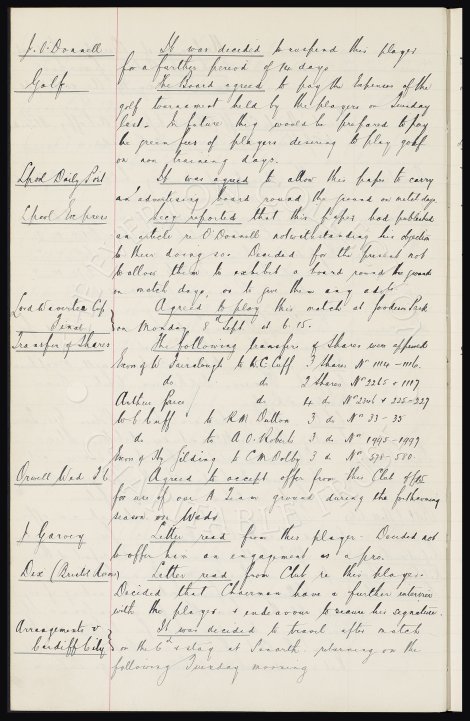 J. O'Donnell It was decided to suspend this player
for a further period of 14 days
Golf. The Board agreed to pay the Expenses of the
golf tournament held by the players on Sunday
last. In future they would be prepared to pay
the green fees of players desiring to play golf
on non training days.
Lpool Daily Post It was agreed to allow this paper to carry
an advertising board round the ground on match days.
Lpool Express Secy reported that this Paper had published
an article re O'Donnell notwithstanding his objection
to them doing so. Decided for the present not
to allow them to exhibit a board round the ground
on match days, or to give them any
Lord Wavertree Cup Agreed to play this match at Goodison Park
Final on Monday 8th Sept at 6.15.
Transfer of Shares The following transfers of Shares were approved
Exors of W. Farralough to W.C. Cuff 3 Shares No 1114-1116.
do do 2 Shares No 2265 & 1117
Arthur Price do 4 do No 2306 & 225-227
W.C. Cuff to R.M. Dutton 3 do No 33-35
do to A.O. Roberts 3 do No 1995-1997
Exors of Hy Gilding to C.M. Dolby 3 do No 578-580.
Orwell Wed. F.C Agreed to accept offer from this Club of
for use of our A Team ground during the forthcoming
season on Weds.
J. Garvey Letter read from this player. Decided not
to offer him an engagement as a pro.
Dix (Bristol Rovers) Letter read from Club re this player.
Decided that Chairman have a further interview
with the player & endeavour to secure his signature.
Arrangements v It was decided to travel after match
Cardiff City on the 6th & stay at Penarth returning on the
following Tuesday morning